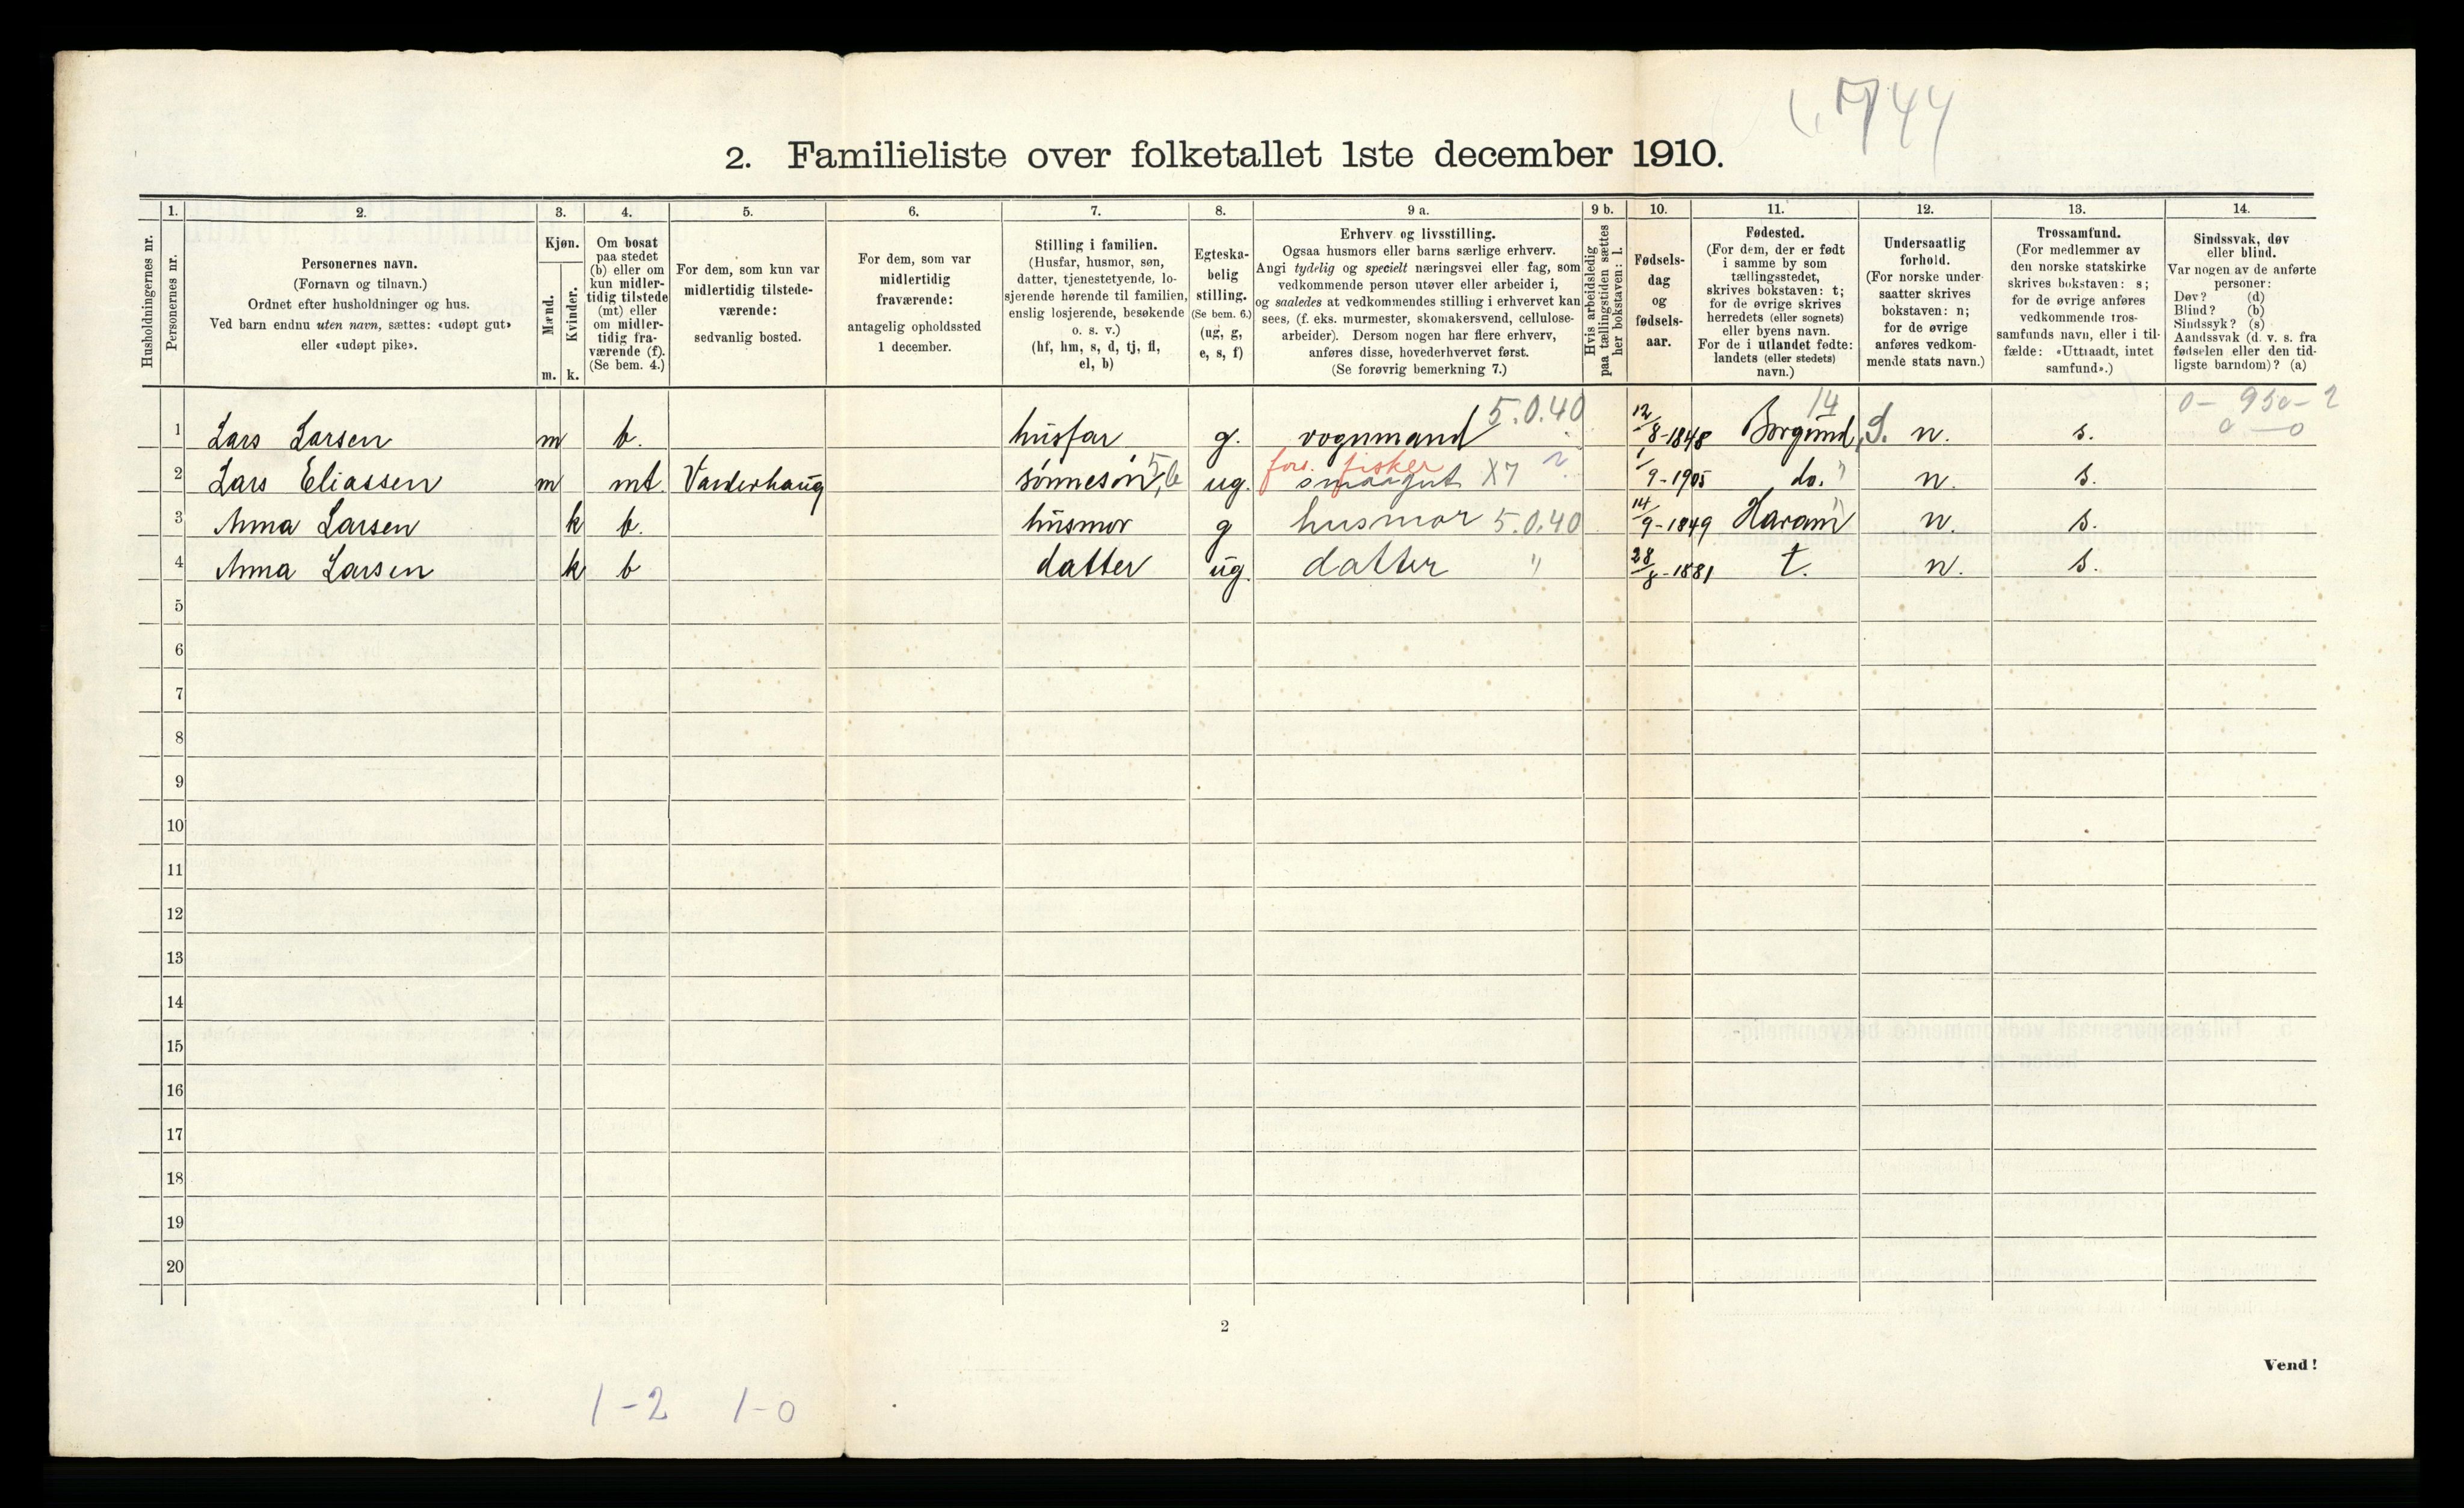 744
2. Familieliste over folketallet 1ste december 1910.
Husholdningernes nr.
1. Personernes nr.
2. Personernes navn. (Fornavn og tilnavn.) Ordnet efter husholdninger og hus. Ved barn endnu uten navn, sættes: «udøpt gut» eller «udøpt pike».
3. Kjøn. Mænd. m. Kvinder. k.
4. Om bosat paa stedet (b) eller om kun midlertidig tilstede (mt) eller om midlertidig fraværende (f). (Se bem. 4.)
5. For dem, som kun var midlertidig tilstedeværende: sedvanlig bosted.
6. For dem, som var midlertidig fraværende: antagelig opholdssted 1 december.
7. Stilling i familien. (Husfar, husmor, søn, datter, tjenestetyende, losjerende hørende til familien, enslig losjerende, besøkende o. s. v.) (hf, hm, s, d, tj, fl, el, b)
8. Egteskabelig stilling. (Se bem. 6.) (ug, g, e, s, f)
9 a. Erhverv og livsstilling. Ogsaa husmors eller barns særlige erhverv. Angi tydelig og specielt næringsvei eller fag, som vedkommende person utøver eller arbeider i, og saaledes at vedkommendes stilling i erhvervet kan sees, (f. eks. murmester, skomakersvend, cellulosearbeider). Dersom nogen har flere erhverv, anføres disse, hovederhvervet først. (Se forøvrig bemerkning 7.)
9 b. Hvis arbeidsledig paa tællingstiden sættes her bokstaven: l.
10. Fødselsdag og fødselsaar.
11. Fødested. (For dem, der er født i samme by som tællingsstedet, skrives bokstaven: t; for de øvrige skrives herredets (eller sognets) eller byens navn. For de i utlandet fødte: landets (eller stedets) navn.)
12. Undersaatlig forhold. (For norske undersaatter skrives bokstaven: n; for de øvrige anføres vedkommende stats navn.)
13. Trossamfund. (For medlemmer av den norske statskirke skrives bokstaven: s; for de øvrige anføres vedkommende trossamfunds navn, eller i tilfælde: «Uttraadt, intet samfund».)
14. Sindssvak, døv eller blind. Var nogen av de anførte personer: Døv? (d) Blind? (b) Sindssyk? (s) Aandssvak (d. v. s. fra fødselen eller den tidligste barndom)? (a)
14 0 - 950 - 2
1 Lars Larsen m b. husfar g. vognmand 5.0.40 12/8-1848 Borgund, S. n. s. 0 - 0
2 Lars Eliassen m mt Varderhaug sønnesøn 5,6 ug. fors. fisker smaagut X7 1/9-1905 do. " n. s.
3 Anna Larsen k b. husmor g husmor 5.0.40 14/9-1849 Haram " n. s.
4 Anna Larsen k b datter ug. datter " 28/8-1881 t. n. s.
5
6
7
8
9
10
11
12
13
14
15
16
17
18
19
20
2
Vend!
1-2 1-0